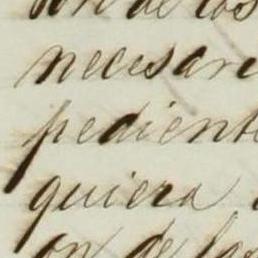 on de los
necesari
pediente
quiera
on de los